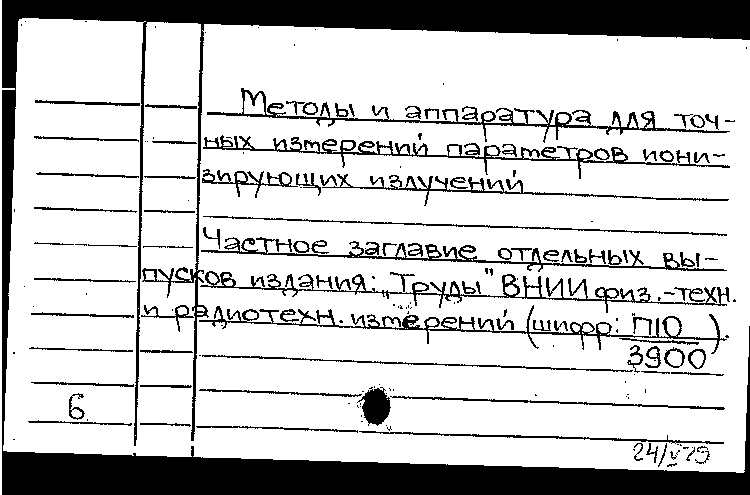 Методы и аппаратура для точ-
ных измерений параметров иони-
зирующих излучений
Частное заглавие отдельных вы-
пусков издания: „Труды" ВНИИ физ.-техн.
и радиотехн. измерений (шифр: П10
3900).
6
24/V 79